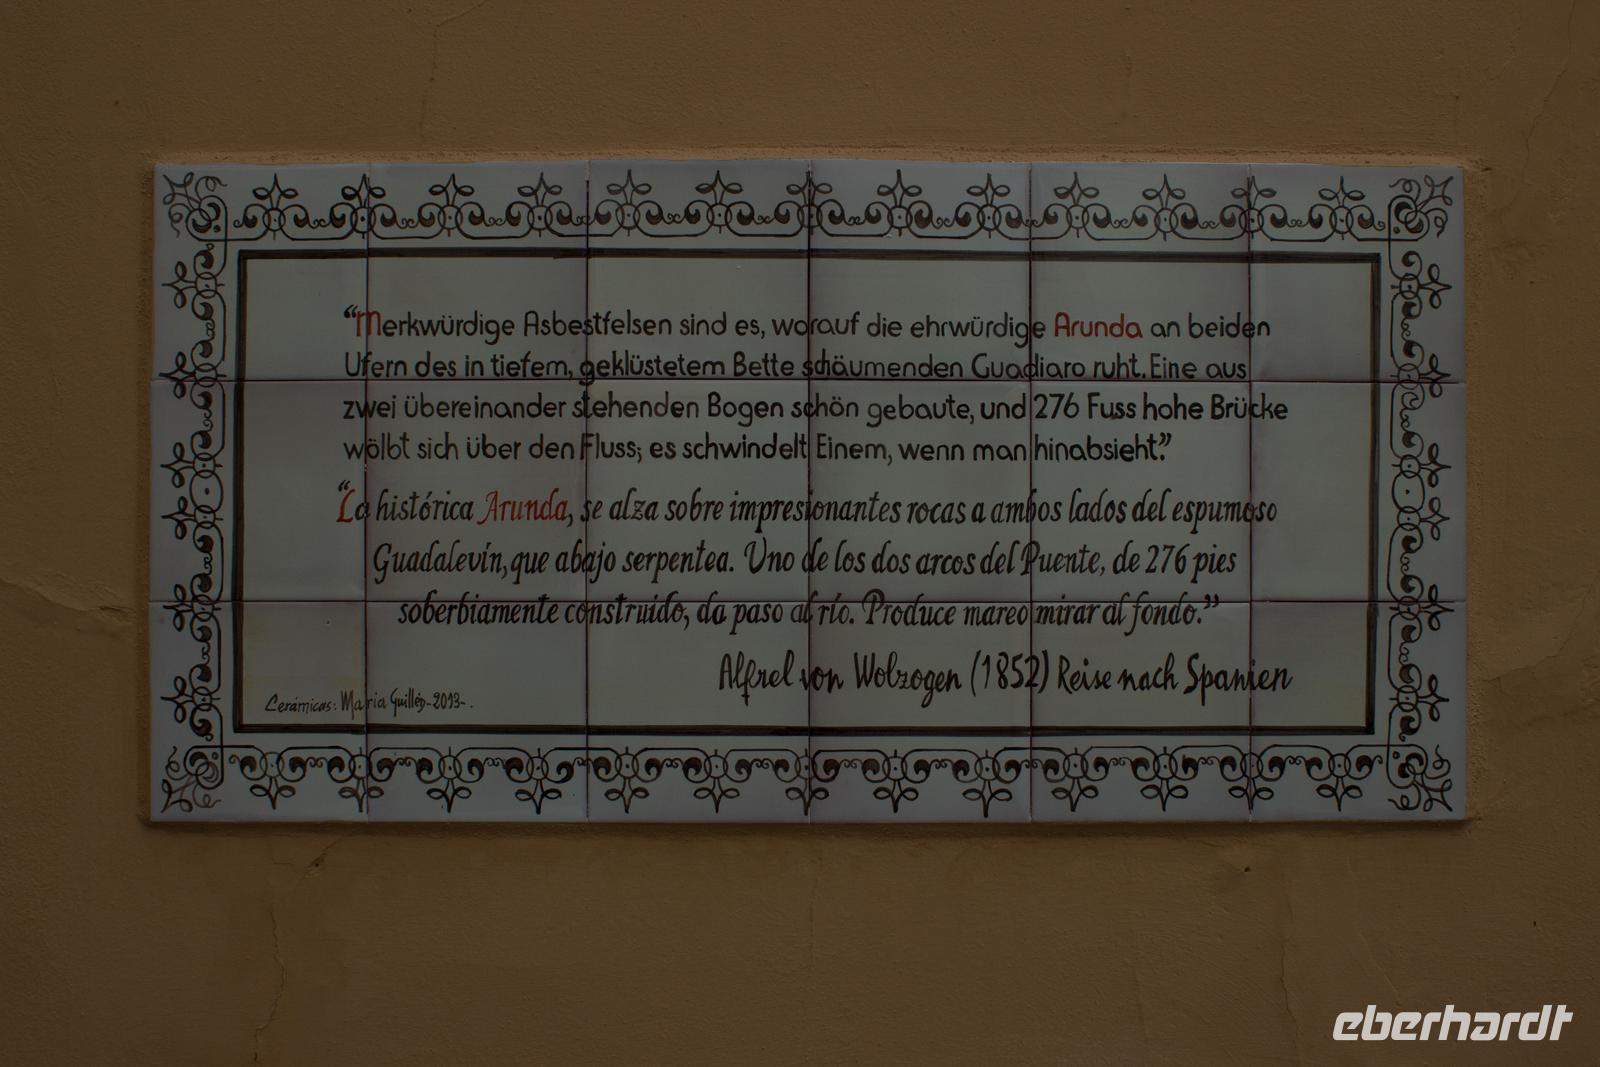 “Merkwürdige Asbestfelsen sind es, worauf die ehrwürdige Arunda an beiden
Ufern des in tiefem, geklüstetem Bette schäumenden Guadiaro ruht. Eine aus
zwei übereinander stehenden Bogen schön gebaute, und 276 Fuss hohe Brücke
wölbt sich über den Fluss; es schwindelt Einem, wenn man hinabsieht.”
“La histórica Arunda, se alza sobre impresionantes rocas a ambos lados del espumoso
Guadalevín, que abajo serpentea. Uno de los dos arcos del Puente, de 276 pies
soberbiamente construido, da paso al río. Produce mareo mirar al fondo.”
Alfrel von Wolzogen (1852) Reise nach Spanien
Cerámicas: Maria Guillén-2013-.
eberhardt